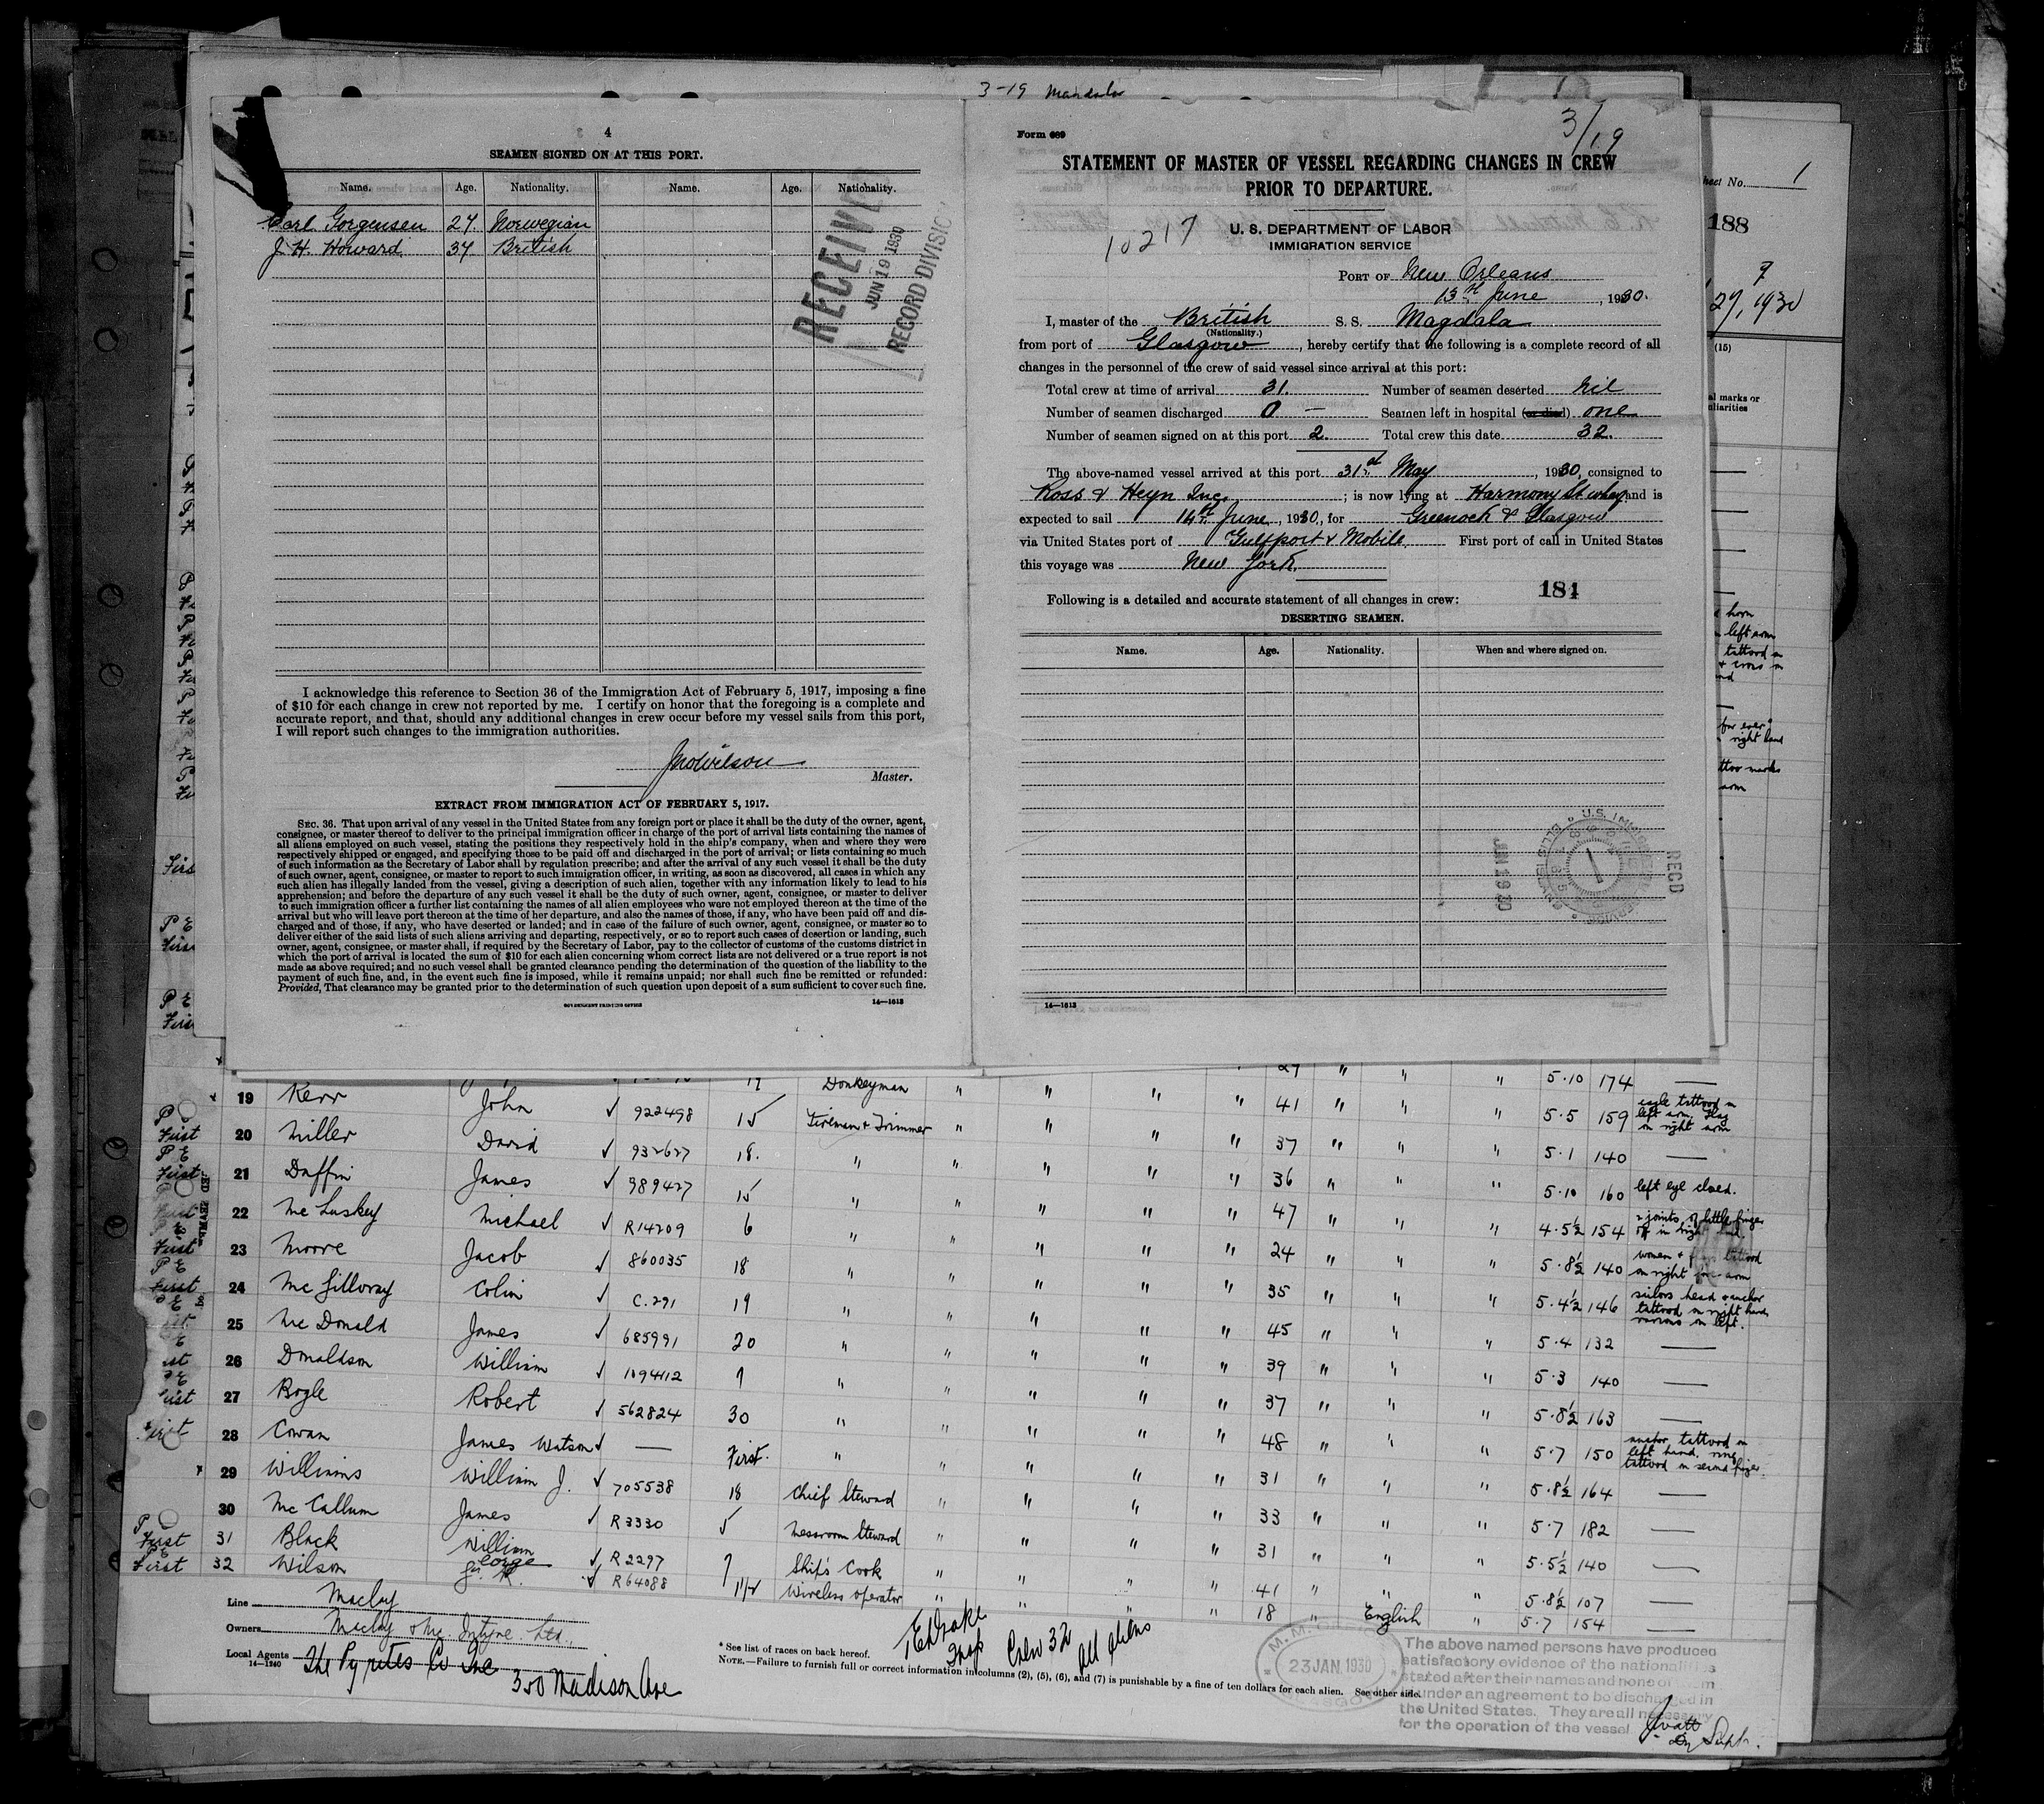 3-19 Magdala
4
SEAMEN SIGNED ON AT THIS PORT.
Name. Age. Nationality. Name. Age. Nationality.
Carl Gorgensen 27. Norwegian
J. H. Howard. 34. British
RECEIVED
JUN 19 1930
RECORD DIVISION
I acknowledge this reference to Section 36 of the Immigration Act of February 5, 1917, imposing a fine
of $10 for each change in crew not reported by me. I certify on honor that the foregoing is a complete and
accurate report, and that, should any additional changes in crew occur before my vessel sails from this port,
I will report such changes to the immigration authorities.
Master.
EXTRACT FROM IMMIGRATION ACT OF FEBRUARY 5, 1917.
SEC. 36. That upon arrival of any vessel in the United States from any foreign port or place it shall be the duty of the owner, agent,
consignee, or master thereof to deliver to the principal immigration officer in charge of the port of arrival lists containing the names of
all aliens employed on such vessel, stating the positions they respectively hold in the ship's company, when and where they were
respectively shipped or engaged, and specifying those to be paid off and discharged in the port of arrival; or lists containing so much
of such information as the Secretary of Labor shall by regulation prescribe; and after the arrival of any such vessel it shall be the duty
of such owner, agent, consignee, or master to report to such immigration officer, in writing, as soon as discovered, all cases in which any
such alien has illegally landed from the vessel, giving a description of such alien, together with any information likely to lead to his
apprehension; and before the departure of any such vessel it shall be the duty of such owner, agent, consignee, or master to deliver
to such immigration officer a further list containing the names of all alien employees who were not employed thereon at the time of the
arrival but who will leave port thereon at the time of her departure, and also the names of those, if any, who have been paid off and dis-
charged and of those, if any, who have deserted or landed; and in case of the failure of such owner, agent, consignee, or master so to
deliver either of the said lists of such aliens arriving and departing, respectively, or so to report such cases of desertion or landing, such
owner, agent, consignee, or master shall, if required by the Secretary of Labor, pay to the collector of customs of the customs district in
which the port of arrival is located the sum of $10 for each alien concerning whom correct lists are not delivered or a true report is not
made as above required; and no such vessel shall be granted clearance pending the determination of the question of the liability to the
payment of such fine, and, in the event such fine is imposed, while it remains unpaid; nor shall such fine be remitted or refunded:
Provided, That clearance may be granted prior to the determination of such question upon deposit of a sum sufficient to cover such fine.
GOVERNMENT PRINTING OFFICE 14—1613
Form 689
3/19
STATEMENT OF MASTER OF VESSEL REGARDING CHANGES IN CREW
PRIOR TO DEPARTURE.
10217
U. S. DEPARTMENT OF LABOR
IMMIGRATION SERVICE
PORT OF New Orleans
13th June, 1930.
I, master of the British S. S. Magdala
(Nationality.)
from port of Glasgow, hereby certify that the following is a complete record of all
changes in the personnel of the crew of said vessel since arrival at this port:
Total crew at time of arrival 31. Number of seamen deserted nil
Number of seamen discharged 0 — Seamen left in hospital (or died) one
Number of seamen signed on at this port 2. Total crew this date 32.
The above-named vessel arrived at this port 31st May, 1930, consigned to
Ross & Heyn Inc.; is now lying at Harmony St whay and is
expected to sail 14th June, 1930, for Greenock & Glasgow
via United States port of Gulfport & Mobile. First port of call in United States
this voyage was New York.
181
Following is a detailed and accurate statement of all changes in crew:
DESERTING SEAMEN.
Name. Age. Nationality. When and where signed on.
JUN 19 30
RECD
14—1613
Sheet No. 1
188
27, 1930
(15)
19 Kerr John 922498 15 Donkeyman 41 5·10 174
20 Miller David 932627 18. Fireman & Trimmer 37 5·5 159 eagle tattood on left arm, flag on right arm
21 Duffin James 989427 15 36 5·1 140
22 Mc Luskey Michael R14209 6 47 5·10 160 left eye closed.
23 Moore Jacob 860035 18 24 4·5½ 154 2 joints of little finger off in right hand.
24 Mc Gillvray Colin C.291 19 35 5·8½ 140 women & tattood on right fore-arm
25 Mc Donald James 685991 20 45 5·4½ 146 sailors head & anchor tattood on right hand, various on left.
26 Donaldson William 1094112 7 39 5·4 132
27 Bogle Robert 562824 30 37 5·3 140
28 Cowan James Watson — First. 48 5·8½ 163
29 Williams William J. 705538 18 Chief Steward 31 5·7 150 anchor tattood on left hand, ring tattood on second finger.
30 Mc Callum James R3330 5 Messroom Steward 33 5·8½ 164
31 Black William R2297 7 Ship's Cook 31 5·7 182
32 Wilson George R64088 1½ Wireless operator 41 5·5½ 140
18 English 5·8½ 107
5·7 154
Line Maclay
Owners Maclay & Mc Intyre Ltd.,
Local Agents The Pyrites Co Inc
350 Madison Ave
14—1240
* See list of races on back hereof.
NOTE.—Failure to furnish full or correct information in columns (2), (5), (6), and (7) is punishable by a fine of ten dollars for each alien. See other side.
Crew 32 all aliens
23 JAN. 1930
The above named persons have produced
satisfactory evidence of the nationalities
stated after their names and none of them
is under an agreement to be discharged in
the United States. They are all necessary
for the operation of the vessel